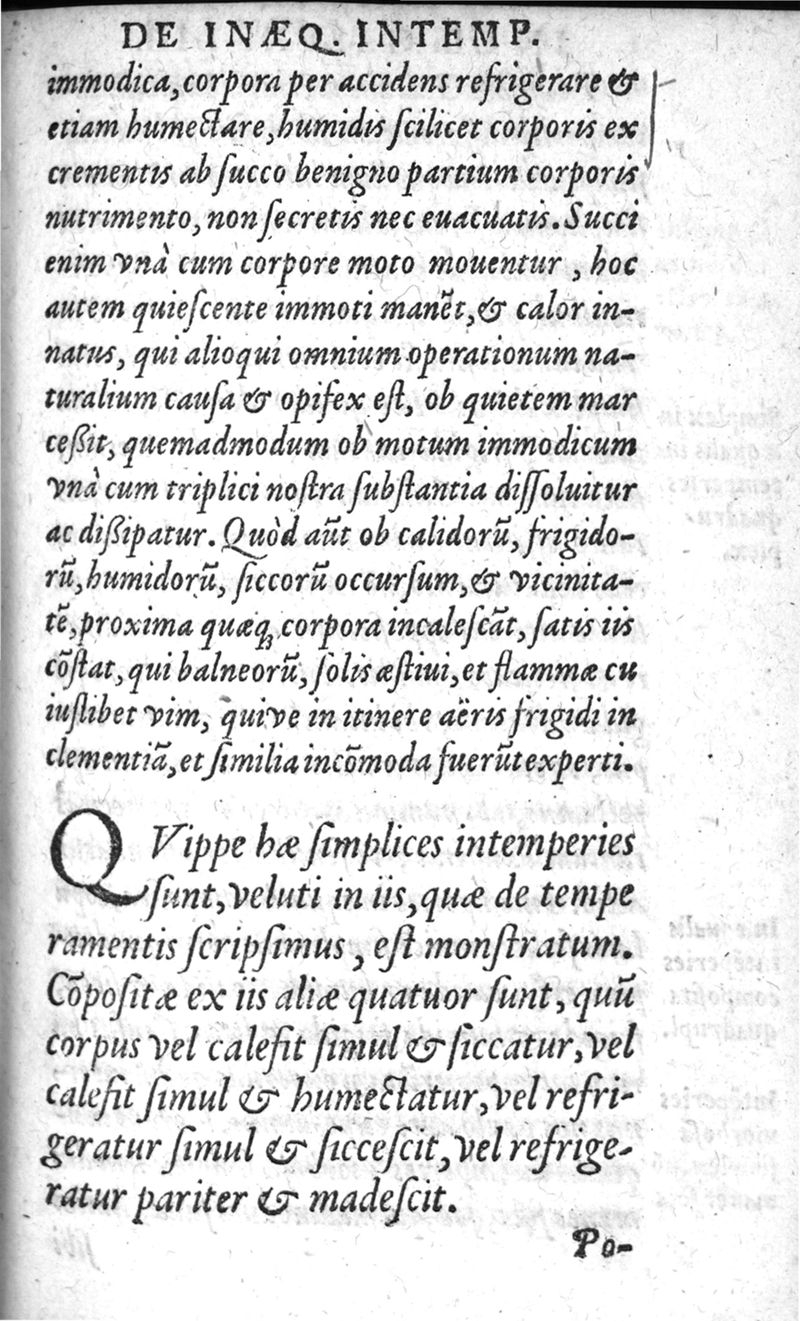 DE INÆQ. INTEMP.
immodica, corpora per accidens refrigerare &
etiam humectare, humidis ſcilicet corporis ex
crementis ab ſucco benigno partium corporis
nutrimento, non ſecretis nec euacuatis. Succi
enim vnà cum corpore moto mouentur, hoc
autem quieſcente immoti manēt, & calor in-
natus, qui alioqui omnium operationum na-
turalium cauſa & opifex eſt, ob quietem mar
ceßit, quemadmodum ob motum immodicum
vnà cum triplici noſtra ſubſtantia diſſoluitur
ac dißipatur. Quòd aūt ob calidorū, frigido-
rū, humidorū, ſiccorū occurſum, & vicinita-
tē, proxima quæq; corpora incaleſcāt, ſatis iis
cōſtat, qui balneorū, ſolis æſtiui, et flammæ cu
iuſlibet vim, quive in itinere aëris frigidi in
clementiā, et ſimilia incōmoda fuerūt experti.
QVippe hæ ſimplices intemperies
ſunt, veluti in iis, quæ de tempe
ramentis ſcripſimus, eſt monſtratum.
Cōpoſitæ ex iis aliæ quatuor ſunt, quū
corpus vel calefit ſimul & ſiccatur, vel
calefit ſimul & humectatur, vel refri-
geratur ſimul & ſicceſcit, vel refrige-
ratur pariter & madeſcit.
Po-